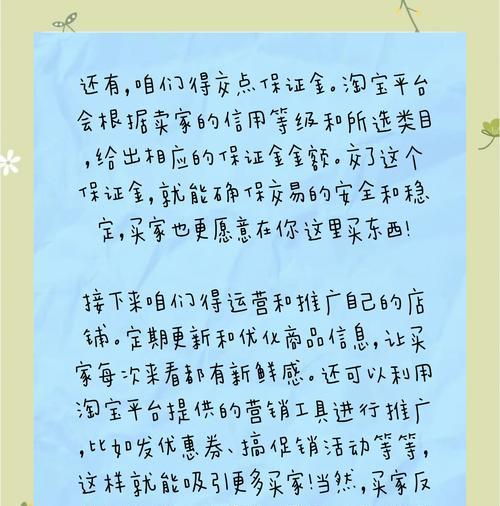 还有,咱们得交点保证金。淘宝平台
会根据卖家的信用等级和所选类目
,给出相应的保证金金额。交了这个
保证金,就能确保交易的安全和稳
定,买家也更愿意在你这里买东西!
接下来咱们得运营和推广自己的店
铺。定期更新和优化商品信息,让买
家每次来看都有新鲜感。还可以利用
淘宝平台提供的营销工具进行推广
,比如发优惠券、搞促销活动等等,
这样就能吸引更多买家!当然,买家反